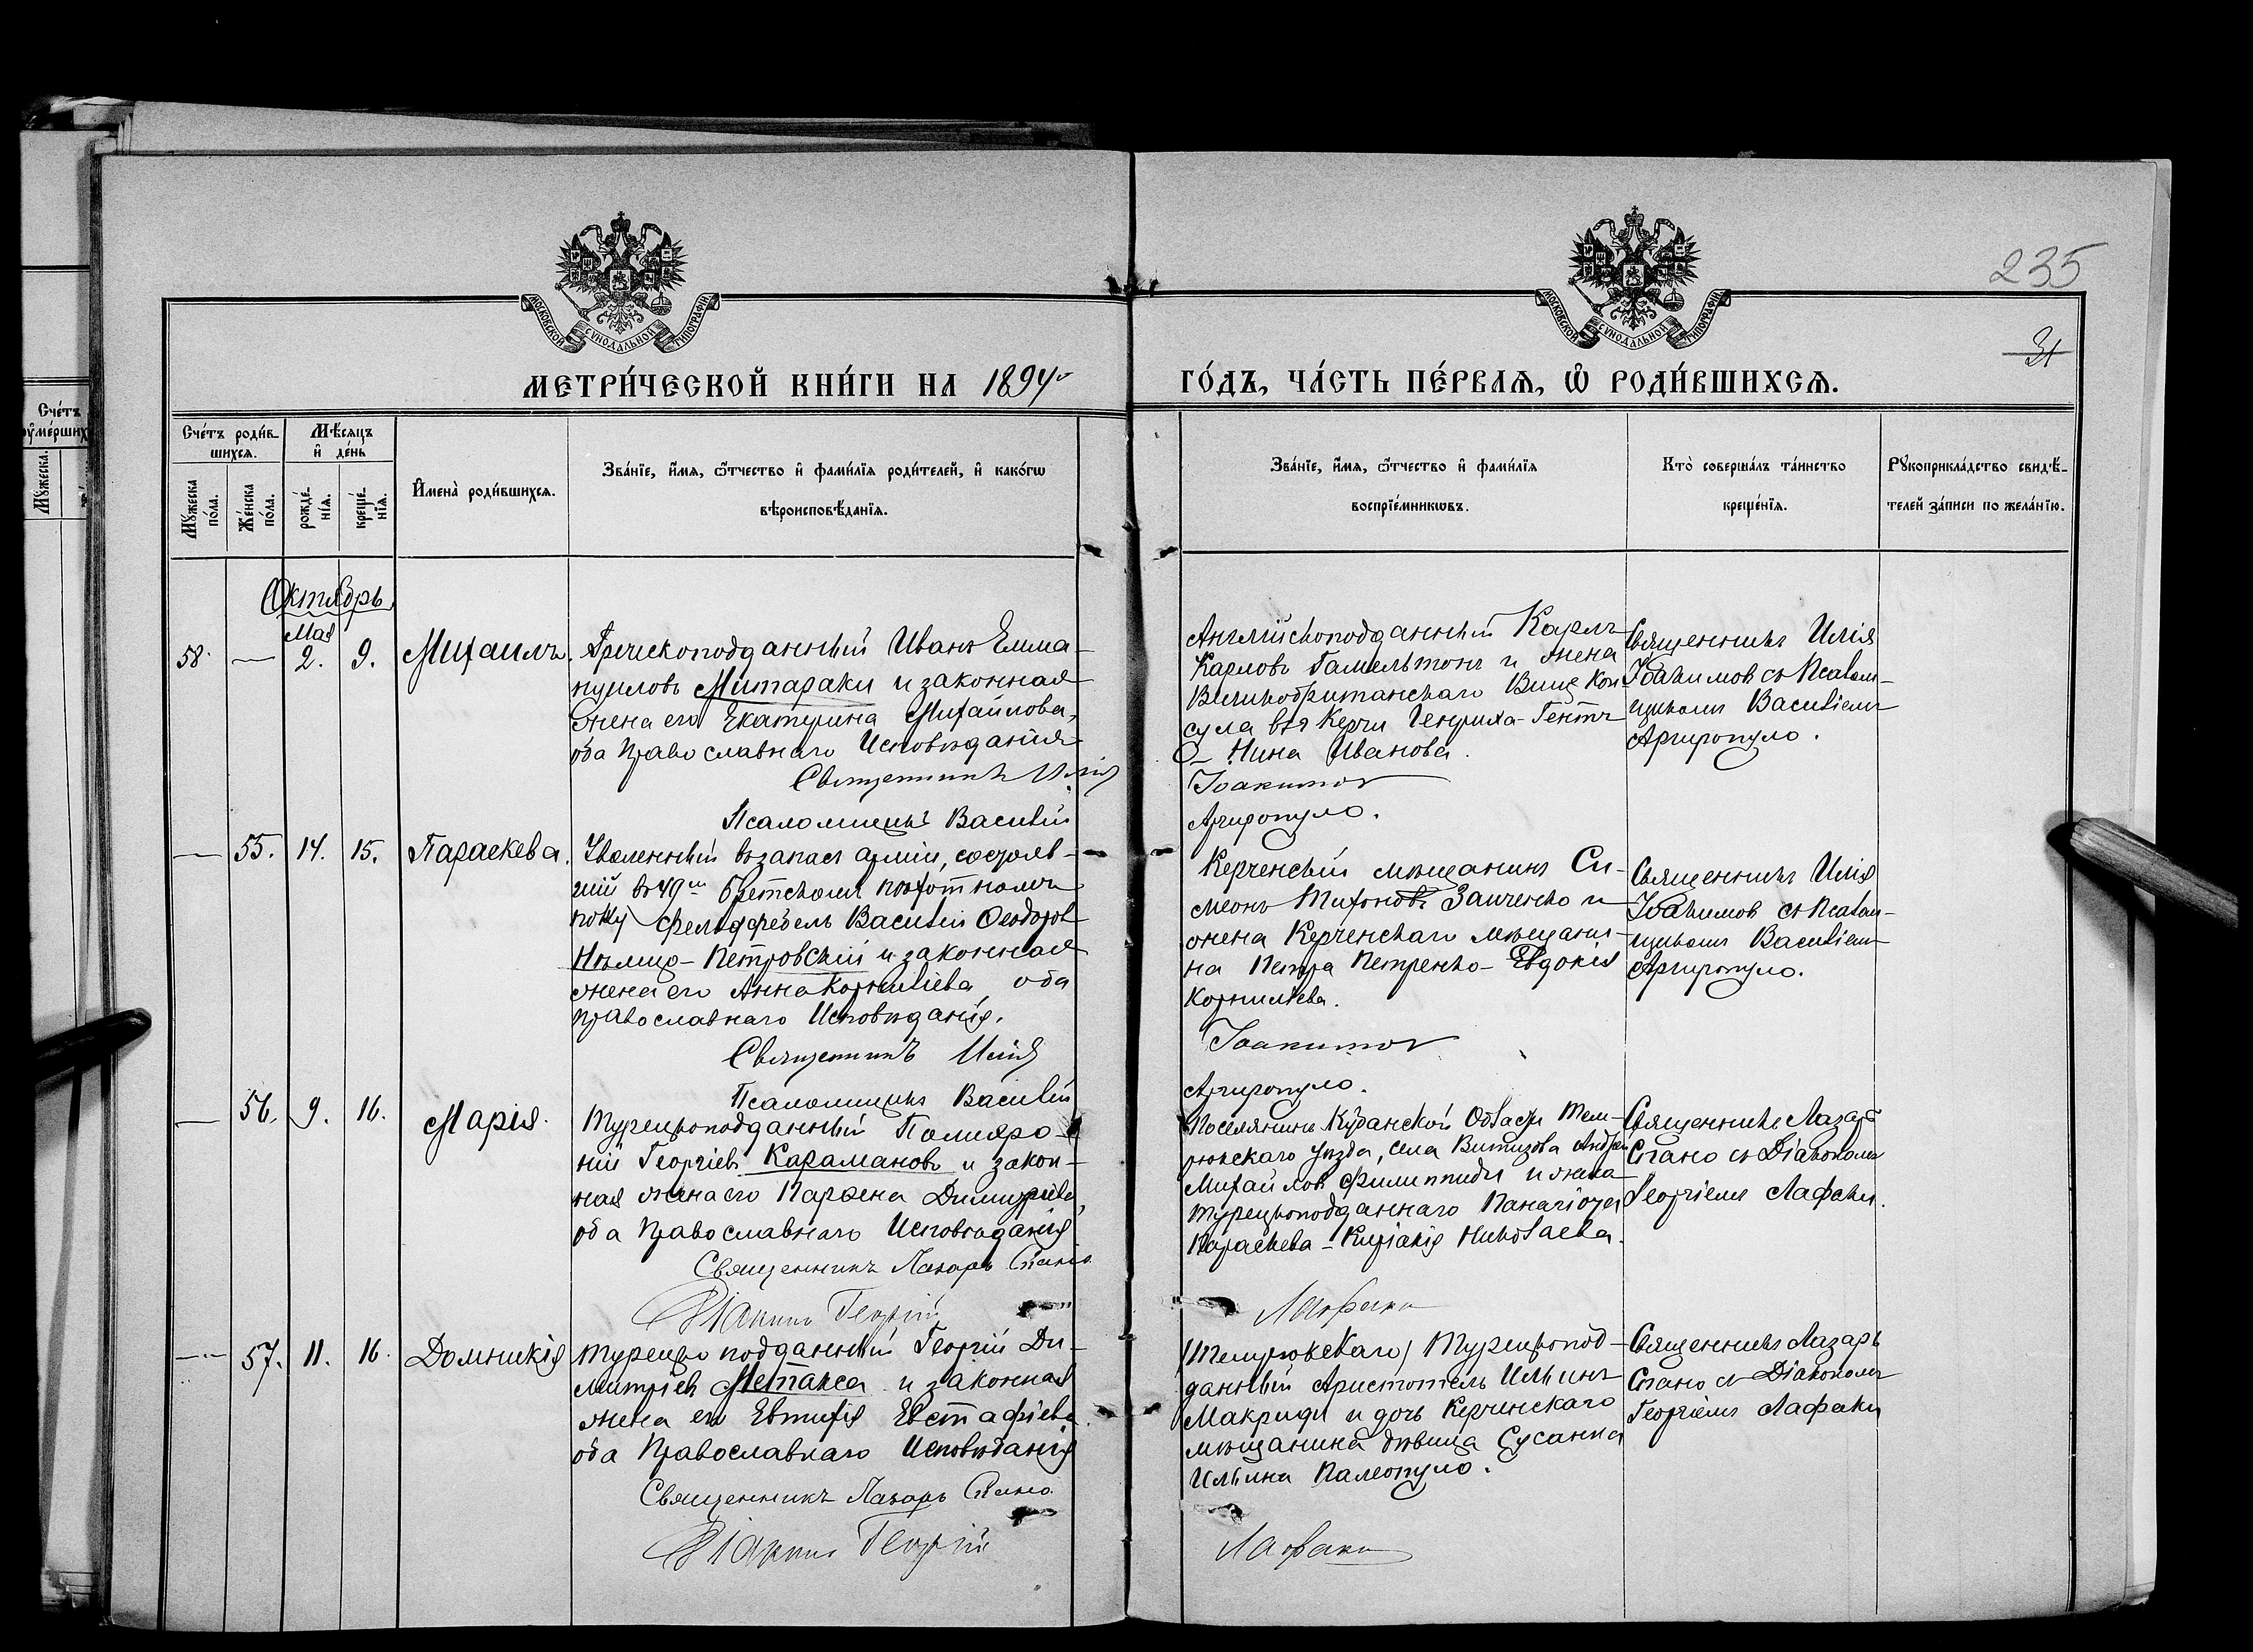 235
31
МОСКОВСКОЙ СѴНОДАЛЬНОЙ ТИПОГРАФІИ
МОСКОВСКОЙ СѴНОДАЛЬНОЙ ТИПОГРАФІИ
МЕТРИ́ЧЕСКОЙ КНИ́ГИ НА 1894
ГО́ДЪ, ЧА́СТЬ ПЕ́РВАѦ, Ѡ҆ РОДИ́ВШИХСѦ.
Сче́тъ
ᲂу҆ме́рших
Мꙋ́жеска.
Сче́тъ роди́в-
шихсѧ.
Мѣ́сѧцъ
и҆ де́нь
Мꙋ́жеска
по́ла.
Же́нска
по́ла.
рожде́-
нїѧ.
креще́-
нїѧ.
И҆мена̀ роди́вшихсѧ.
Зва́нїе, и҆́мѧ, ѻ҆́тчество и҆ фами́лїѧ роди́телей, и҆ како́гѡ
вѣроисповѣ́данїѧ.
Зва́нїе, и҆́мѧ, ѻ҆́тчество и҆ фами́лїѧ
воспрїе́мникѡвъ.
Кто̀ соверша́лъ та́инство
креще́нїѧ.
Рꙋкоприкла́дство свидѣ́-
телей за́писи по жела́нїю.
Октябрь
Мая
58. — 2. 9. Михаилъ.
Греческоподданный Иванъ Емма-
нуиловъ Митараки и законная
жена его Екатерина Михайлова,
оба Православнаго Исповѣданія
Священникъ Илія
Псаломщикъ Василій
Англійскоподданный Карлъ
Карловъ Гамельтонъ и жена
Великобританскаго Вице Кон-
сула въ Керчи Генриха Гентъ
Нина Иванова.
Іоакимов
Аргиропуло.
Священникъ Илія
Іоакимов съ Псалом-
щикомъ Василіемъ
Аргиропуло.
— 55. 14. 15. Параскева.
Уволенный въ запасъ арміи, состояв-
шій въ 49м Брестскомъ пѣхотномъ
полку фельдфебель Василій Ѳеодоров
Нѣмцо-Петровскій и законная
жена его Анна Корнилiева, оба
Православнаго Исповѣданія.
Священникъ Илія
Псаломщикъ Василій
Керченскій мѣщанинъ Си-
меонъ Тихоновъ Заиченко и
жена Керченскаго мѣщани-
на Петра Петренко - Евдокія
Корнильева.
Іоакимов
Аргиропуло.
Священникъ Илія
Іоакимов съ Псалом-
щикомъ Василіемъ
Аргиропуло.
— 56. 9. 16. Марія.
Турецкоподданный
ній Георгіевъ Карамановъ и закон-
ная жена его Парѳена Димитріева,
оба Православнаго Исповѣданія
Священникъ Лазарь Спано.
Діаконъ Георгій
Поселянинъ Кубанской Области Тем-
рюкскаго уѣзда, села Витязова Андрей
Михайлов Филиппиди и жена
Турецкоподданнаго Панаіота
Параскева - Киріакія Николаева.
Лафаки
Священникъ Лазарь
Спано съ Діакономъ
Георгіемъ Лафаки.
— 57. 11. 16. Домникія
Турецко подданный Георгій Ди-
митріев Метакса и законная
жена его Евтихія Евстафіева
оба Православнаго Исповѣданія
Священникъ Лазарь Спано
Діаконъ Георгій
(Темрюкскаго) Турецкопод-
данный Аристотель Ильинъ
Макриди и дочь Керченскаго
мѣщанина дѣвица Сусанна
Ильина Палеопуло.
Лафаки
Священникъ Лазарь
Спано съ Діакономъ
Георгіемъ Лафаки